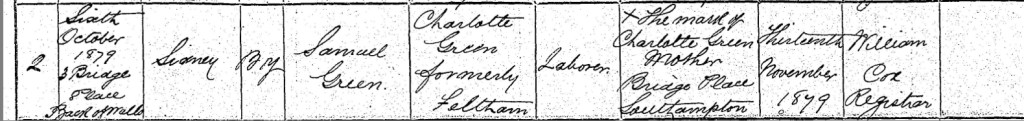 2
Sixth
October
1879
3 Bridge
Place
Back of Walls
Sidney
Boy
Samuel
Green.
Charlotte
Green
formerly
Feltham
Laborer.
X The mark of
Charlotte Green
Mother
Bridge Place
Southampton
Thirteenth
November
1879
William
Cox
Registrar